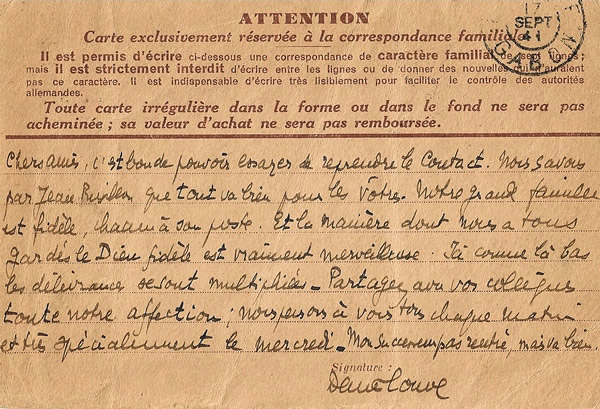 ATTENTION
Carte exclusivement réservée à la correspondance familiale.
Il est permis d'écrire ci-dessous une correspondance de caractère familial de sept lignes;
mais il est strictement interdit d'écrire entre les lignes ou de donner des nouvelles qui n'auraient
pas ce caractère. Il est indispensable d'écrire très lisiblement pour faciliter le contrôle des autorités
allemandes.
Toute carte irrégulière dans la forme ou dans le fond ne sera pas
acheminée ; sa valeur d'achat ne sera pas remboursée.
17
SEPT
41
GABON
Chers amis, c'est bon de pouvoir essayer de reprendre le Contact. Nous savons
par Jean que tout va bien pour les Vôtres. Notre grande famille
est fidèle, chacun à son poste. Et la manière dont nous a tous
gardés le Dieu fidèle est vraiment merveilleuse. Ici comme là bas
les délivrances se sont multipliées - Partagez avec vos collègues
toute notre affection ; nous pensons à vous tous chaque matin
et très spécialement le mercredi - Mon successeur pas rentré, mais va bien.
Signature :